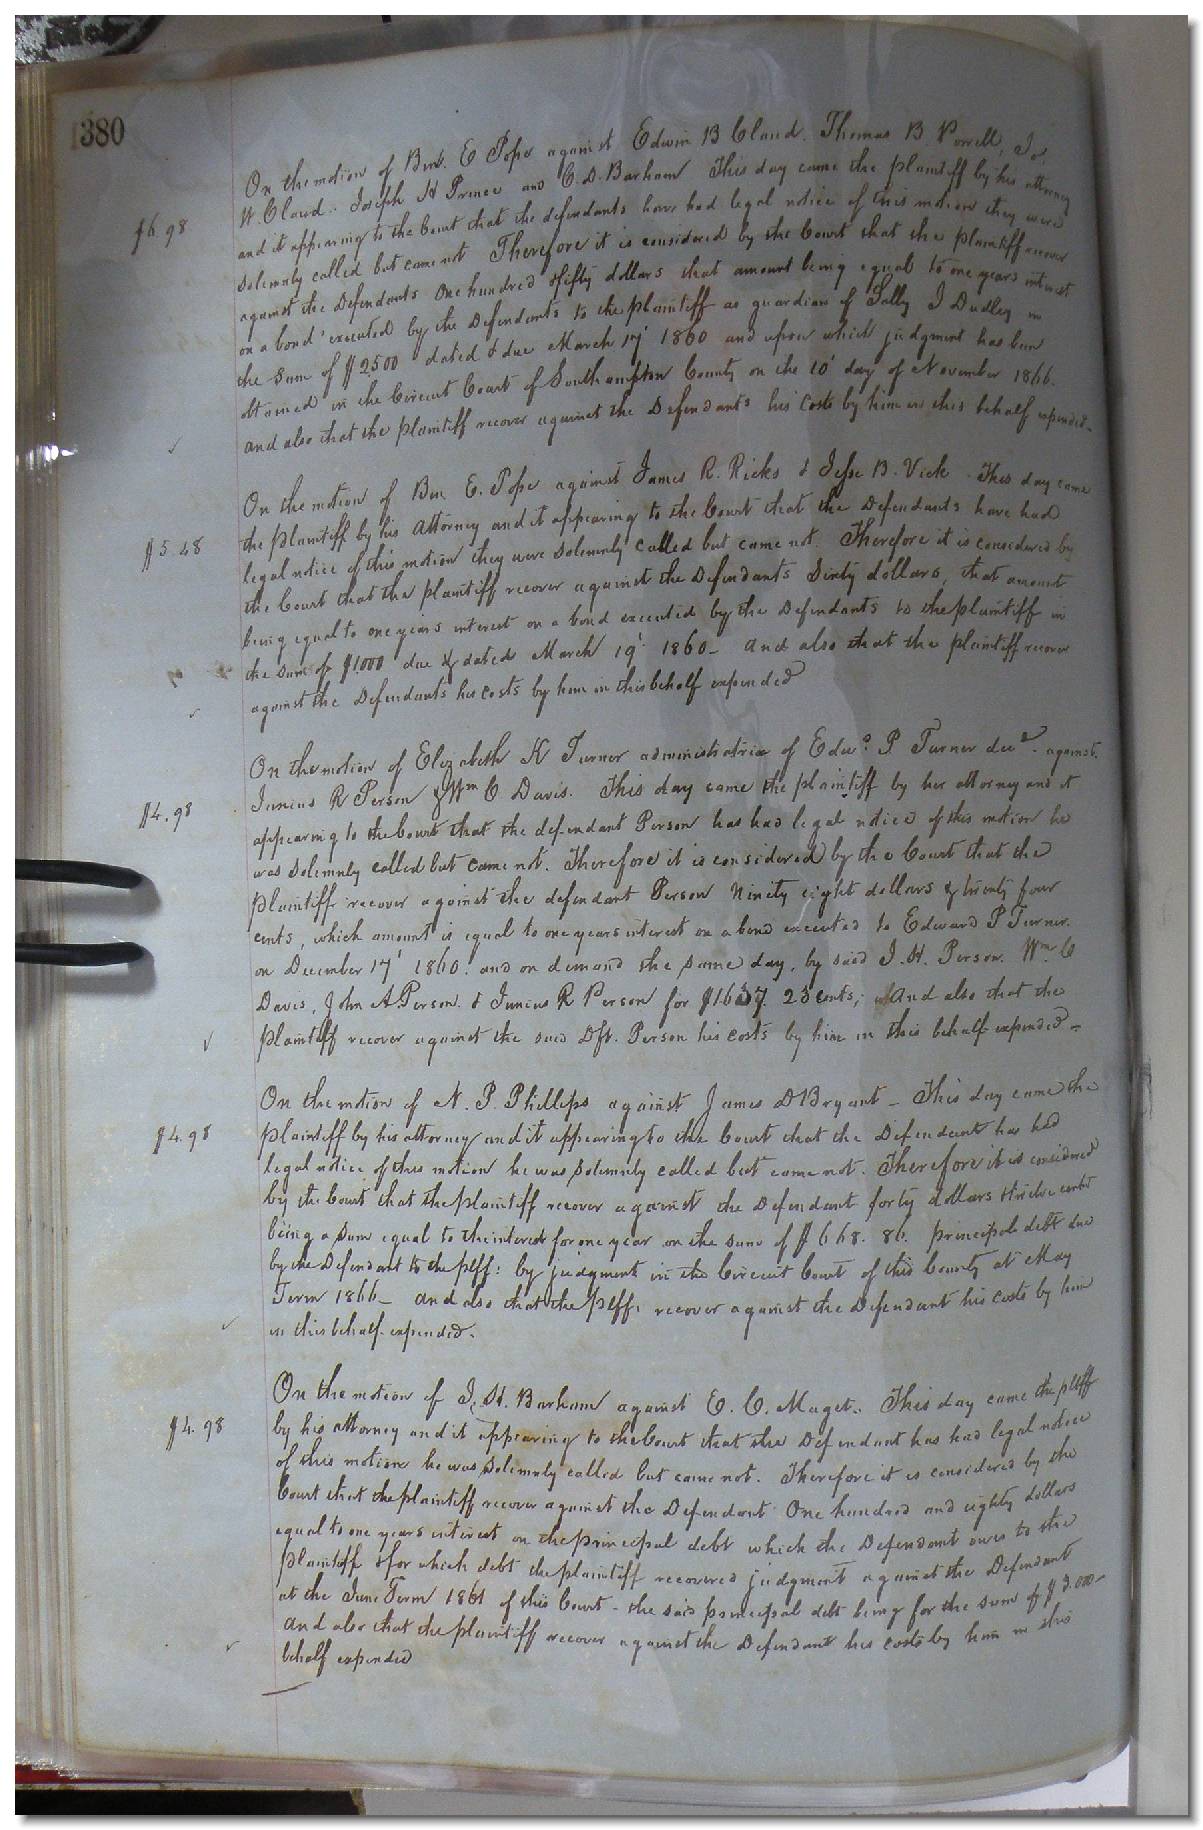 380
On the motion of Benj. E Pope against Edwin B Claud. Thomas B. Vorrell, Jos.
W. Claud. Joseph H Prince and C. D. Barham This day came the plaintiff by his attorney
$6.98
and it appearing to the Court that the defendants have had legal notice of this motion they were
solemnly called but came not Therefore it is considered by the Court that the plaintiff recover
against the Defendants One hundred & fifty dollars that amount being equal to one years interest
on a bond executed by the Defendants to the plaintiff as guardian of Sally J Dudley in
the sum of $2500 dated & due March 17' 1860 and upon which judgment has been
obtained in the Circuit Court of Southampton County on the 10' day of November 1866.
and also that the plaintiff recover against the Defendants his costs by him in this behalf expended.
On the motion of Ben E. Pope against James R. Ricks & Jesse B. Vick This day came
the plaintiff by his attorney and it appearing to the Court that the Defendants have had
$5.48
legal notice of this motion they were solemnly called but came not. Therefore it is considered by
the Court that the plaintiff recover against the Defendants Sixty dollars, that amount
being equal to one years interest on a bond executed by the Defendants to the plaintiff in
the sum of $1000 due & dated March 19' 1860_ and also that the plaintiff recover
against the Defendants his costs by him in this behalf expended
On the motion of Elizabeth K Turner administratrix of Edwd. P Turner decd. against
Junius R Person & Wm C Davis. This day came the plaintiff by her attorney and it
$4.98
appearing to the Court that the defendant Person has had legal notice of this motion he
was solemnly called but came not. Therefore it is considered by the Court that the
plaintiff recover against the defendant Person Ninety eight dollars & twenty four
cents, which amount is equal to one years interest on a bond executed to Edward P Turner.
on December 17' 1860. and on demand the same day, by said J. H. Person. Wm C
Davis, John A. Person. & Junius R Person for $1637. 23 cents; And also that the
plaintiff recover against the said Dft. Person his costs by him in this behalf expended_
On the motion of N. P. Phillips against James D Bryant _ This day came the
$4.98
plaintiff by his attorney and it appearing to the Court that the Defendant has had
legal notice of this motion he was solemnly called but came not. Therefore it is considered
by the Court that the plaintiff recover against the Defendant forty dollars & twelve cents
being a sum equal to the interest for one year on the sum of $668. 86. principle debt due
by the Defendant to the plff: by judgment in the Circuit Court of this County at May
Term 1866_ and also that the plff: recover against the Defendant his costs by him
in this behalf expended.
On the motion of J. H. Barham against E. C. Maget. This day came the plff
$4.98
by his attorney and it appearing to the Court that the Defendant has had legal notice
of this motion he was solemnly called but came not. Therefore it is considered by the
Court that the plaintiff recover against the Defendant One hundred and eighty dollars
equal to one years interest on the principal debt which the Defendant owes to the
plaintiff & for which debt the plaintiff recovered judgment against the Defendant
at the June Term 1861 of this Court - the said principal debt being for the sum of $3.000-
and also that the plaintiff recover against the Defendant his costs by him in this
behalf expended